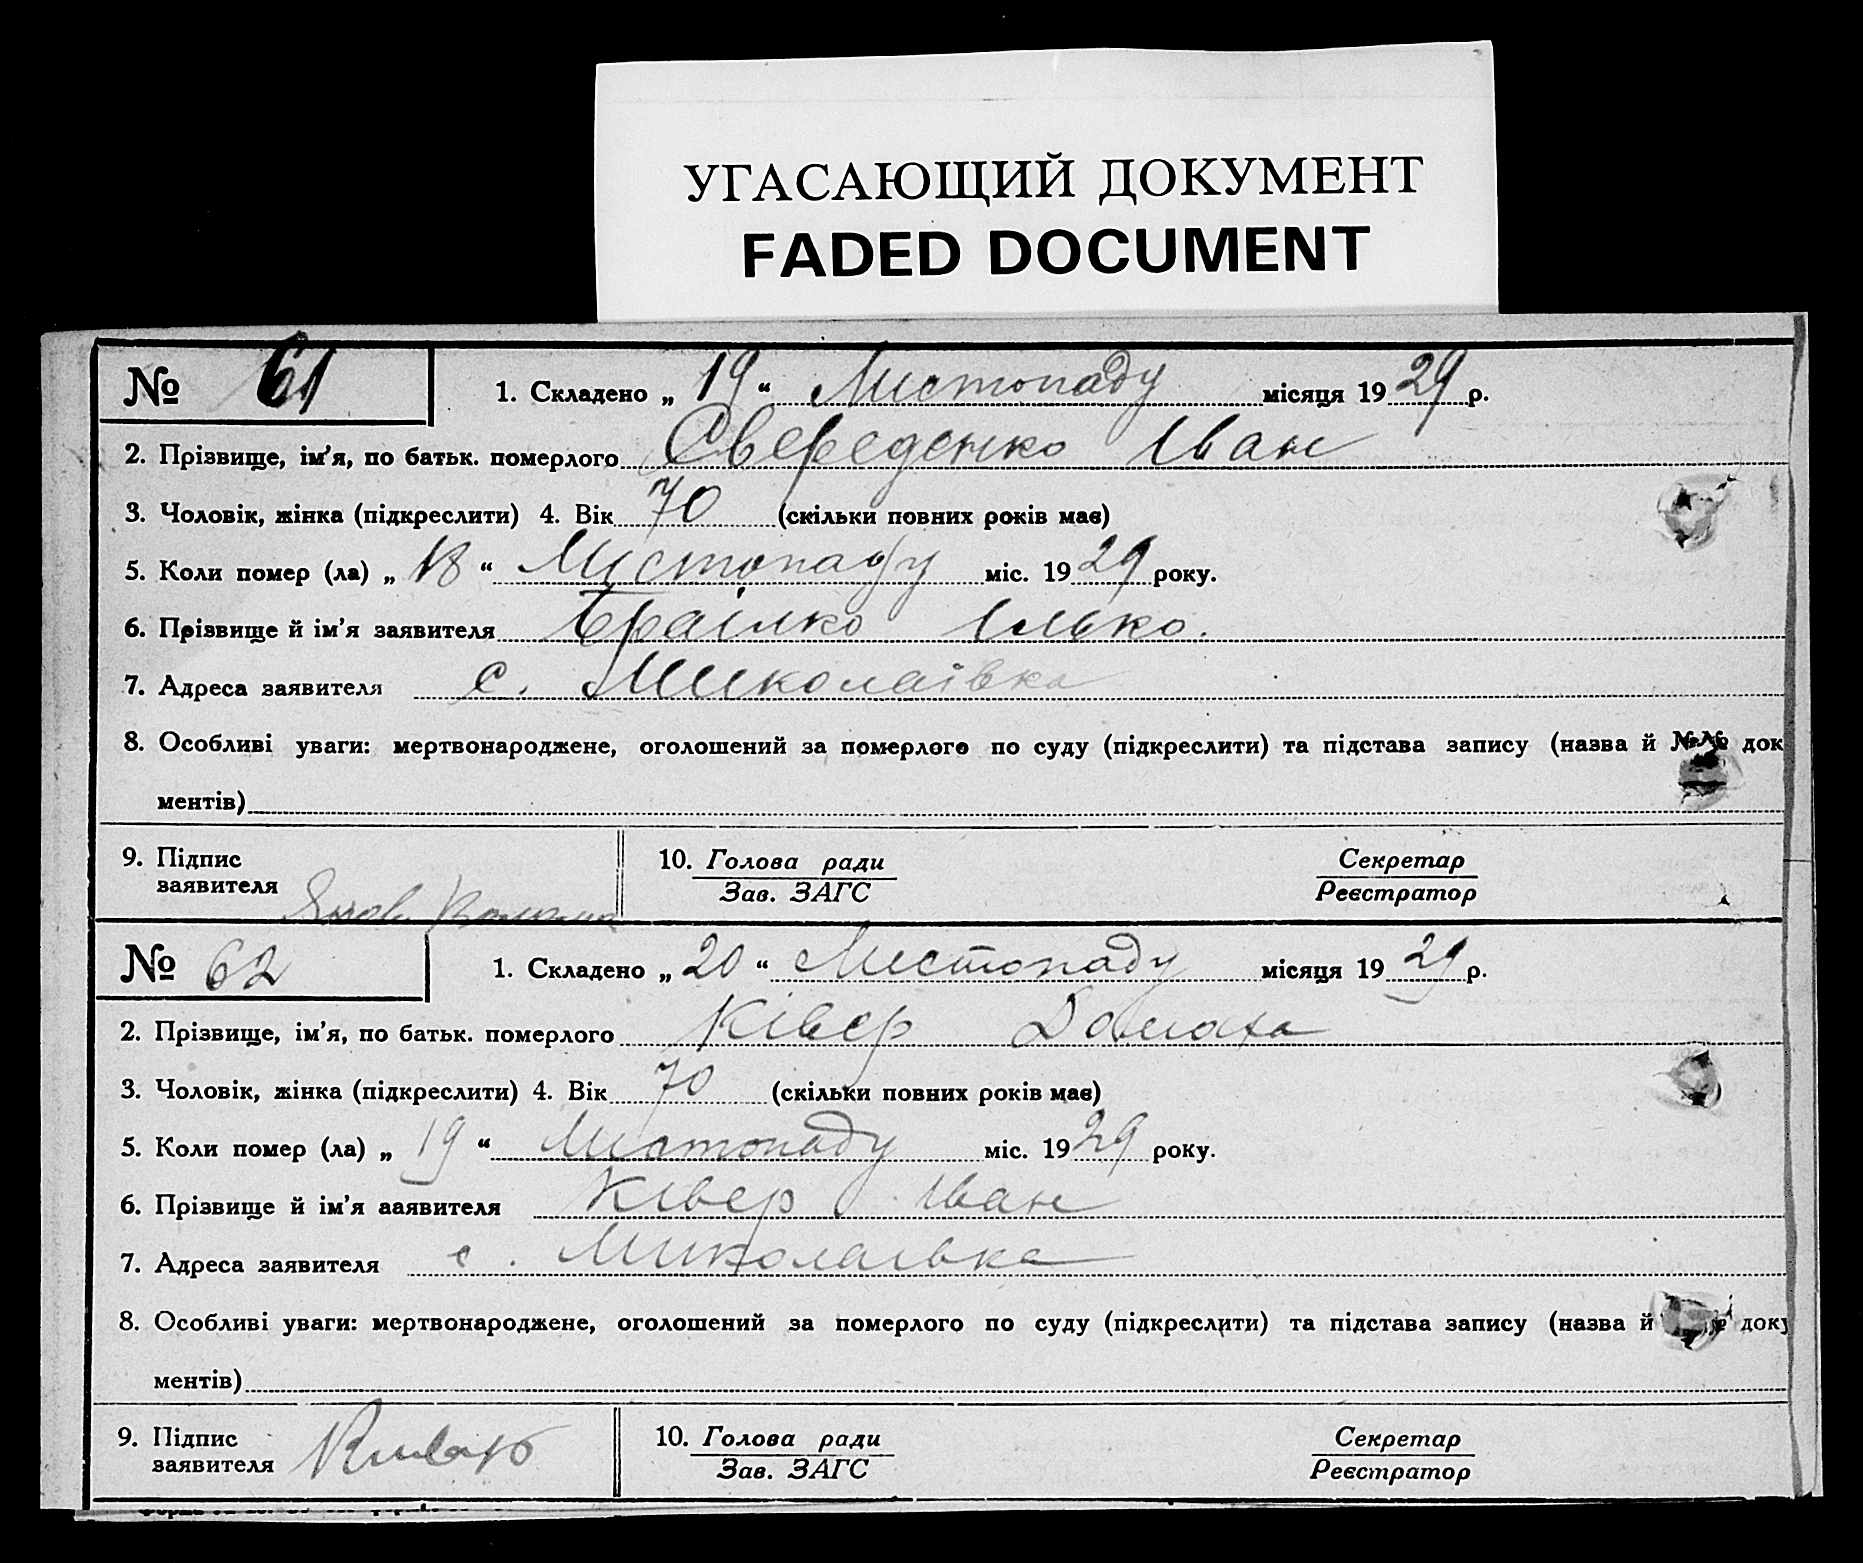 УГАСАЮЩИЙ ДОКУМЕНТ
FADED DOCUMENT
№ 61 1. Складено „ 19 “ Листопаду місяця 19 29 р.
2. Прізвище, ім’я, по батьк. померлого Свереденко Іван
3. Чоловік, жінка (підкреслити) 4. Вік 70 (скільки повних років має)
5. Коли помер (ла) „ 18 “ Листопаду міс. 19 29 року.
6. Прізвище й ім’я заявителя Браілко Ілько.
7. Адреса заявителя с. Миколаївка
8. Особливі уваги: мертвонароджене, оголошений за померлого по суду (підкреслити) та підстава запису (назва й №№ док
ментів)
9. Підпис 10. Голова ради Секретар
заявителя Зав. ЗАГС Реєстратор
№ 62 1. Складено „ 20 “ Листопаду місяця 19 29 р.
2. Прізвище, ім’я, по батьк. померлого Ківер Домаха
3. Чоловік, жінка (підкреслити) 4. Вік 70 (скільки повних років має)
5. Коли помер (ла) „ 19 “ Листопаду міс. 19 29 року.
6. Прізвище й ім’я заявителя Ківер Іван
7. Адреса заявителя с. Миколаівка
8. Особливі уваги: мертвонароджене, оголошений за померлого по суду (підкреслити) та підстава запису (назва й доку
ментів)
9. Підпис 10. Голова ради Секретар
заявителя Зав. ЗАГС Реєстратор